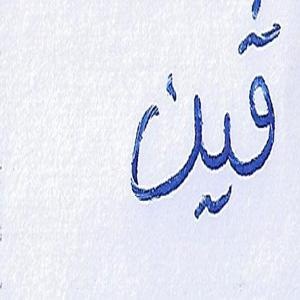 قين